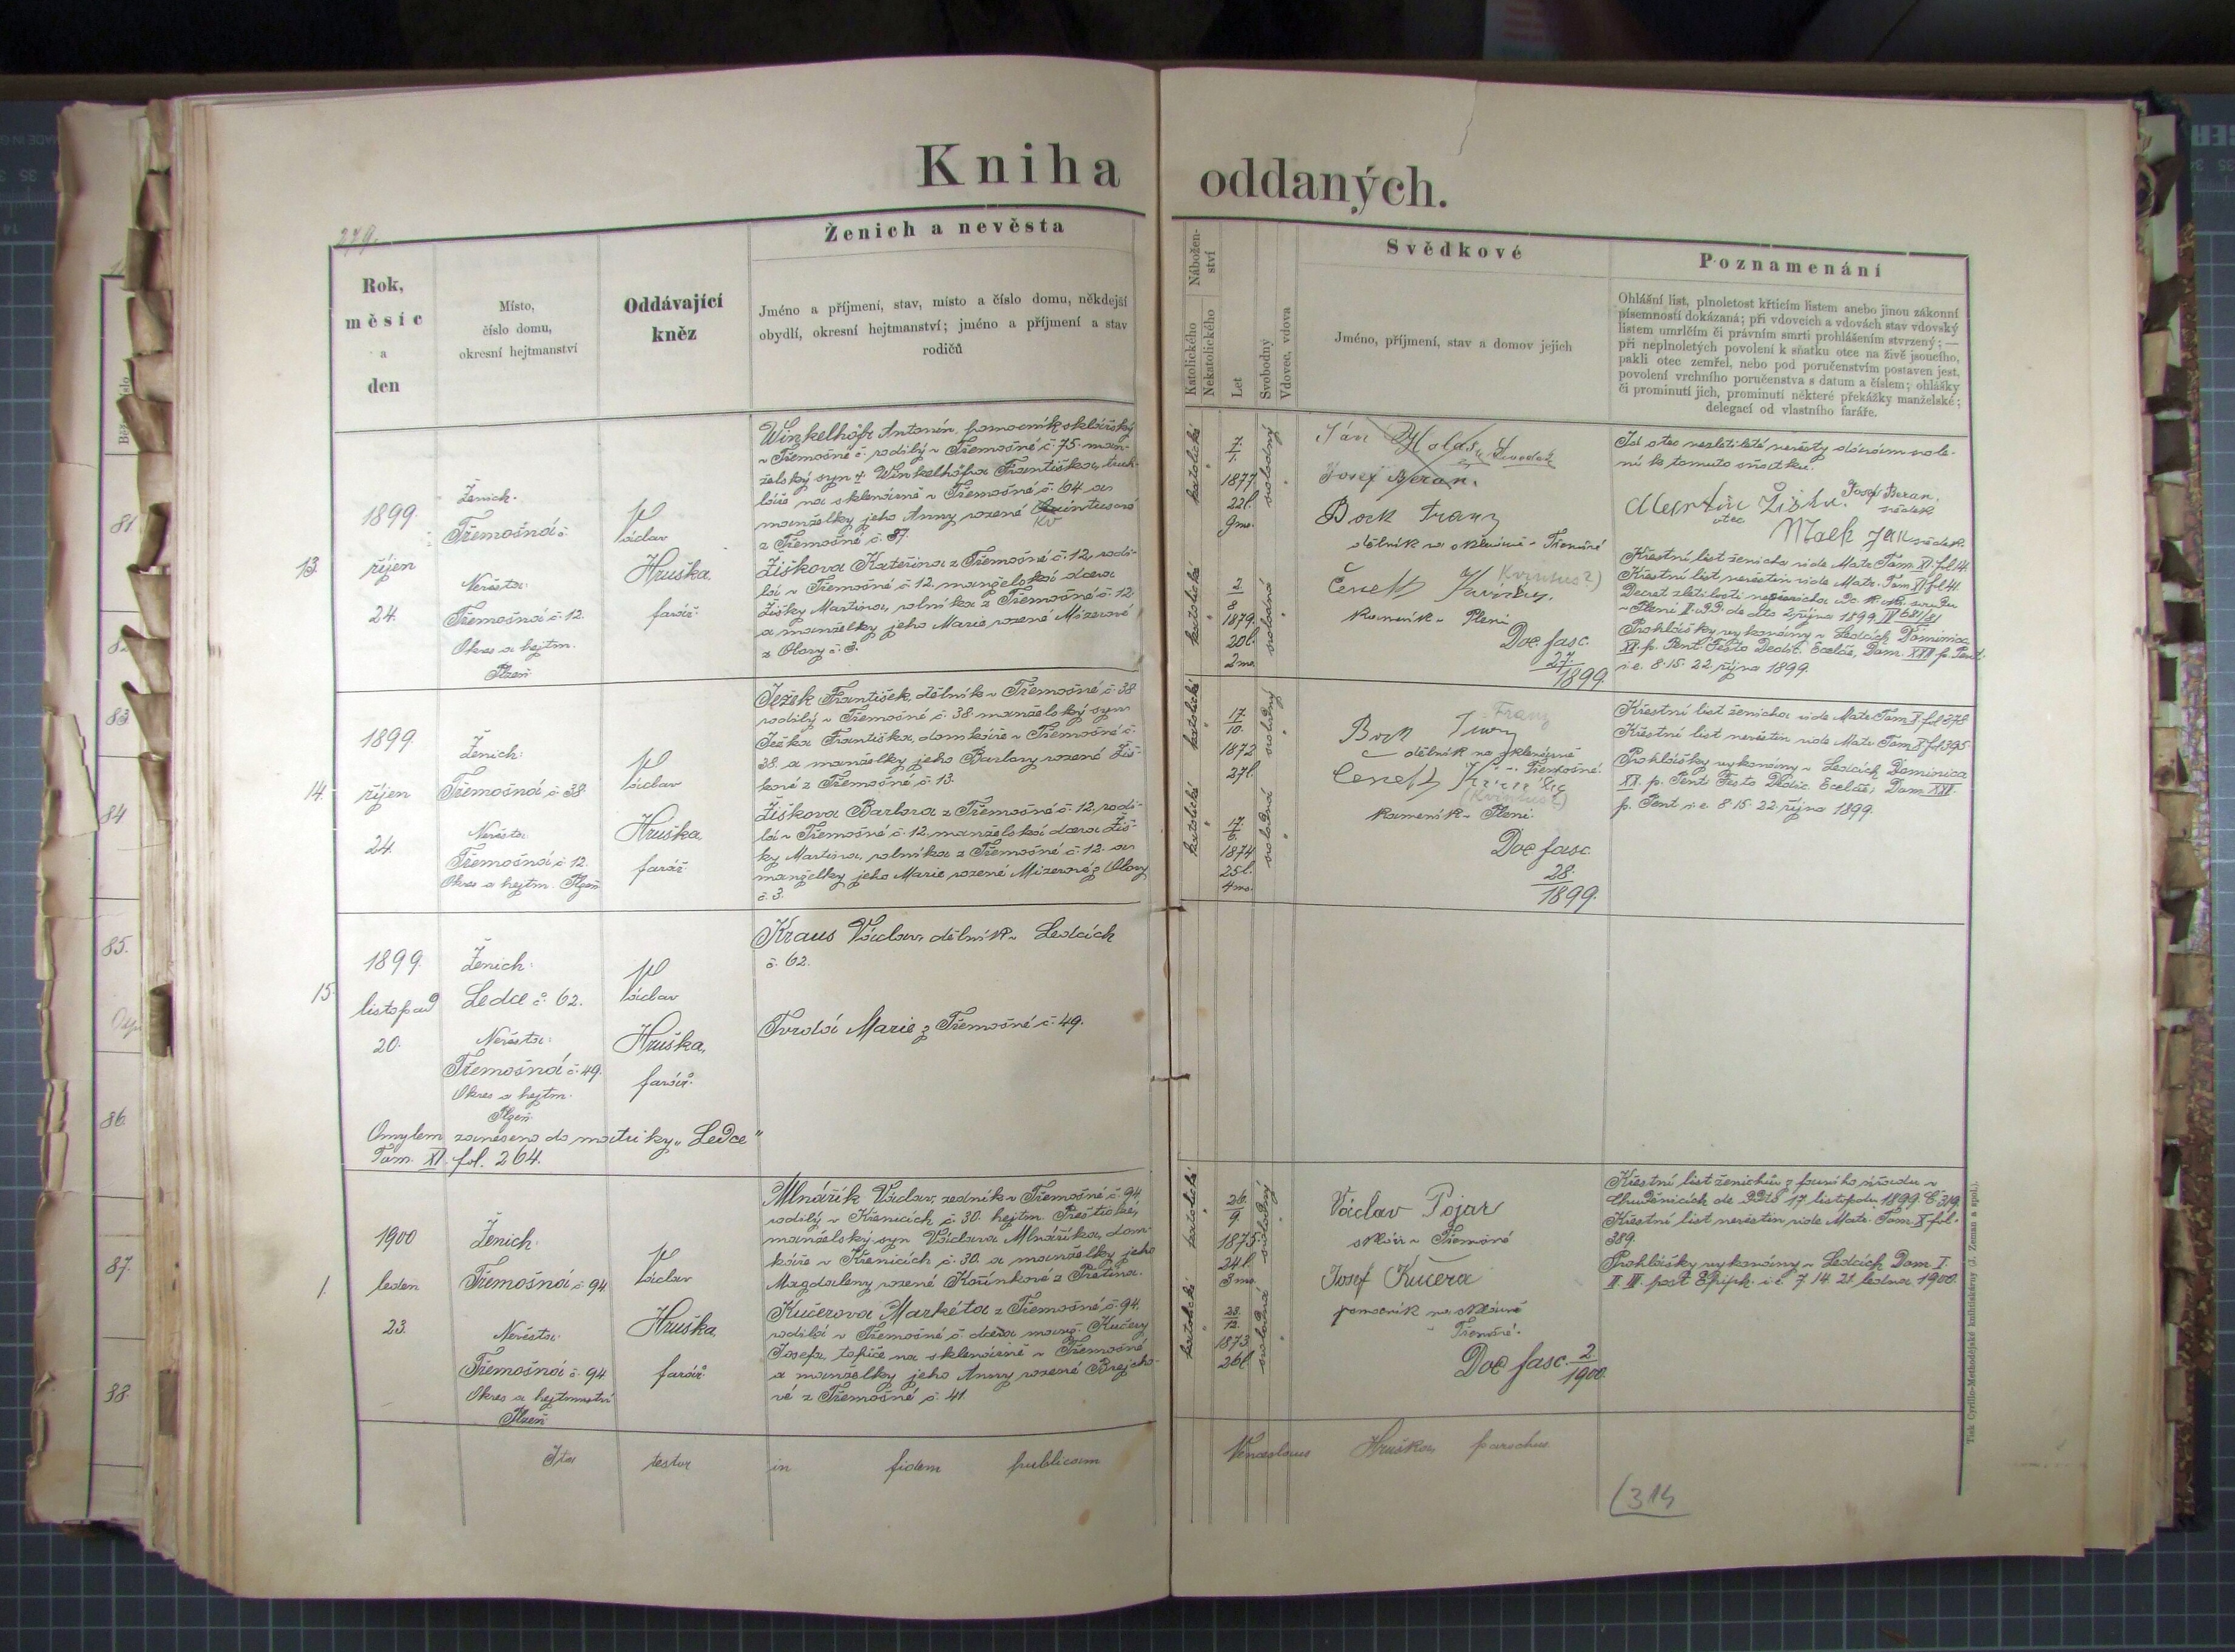 Kniha oddaných.
279.
Rok,
měsíc
a
den
Místo,
číslo domu,
okresní hejtmanství
Oddávající
kněz
Ženich a nevěsta
Jméno a příjmení, stav, místo a číslo domu, někdejší
obydlí, okresní hejtmanství; jméno a příjmení a stav
rodičů
Nábožen-
ství
Katolického
Nekatolického
Let
Svobodný
Vdovec, vdova
Svědkové
Jméno, příjmení, stav a domov jejich
Poznamenání
Ohlášní list, plnoletost křticím listem anebo jinou zákonní
písemností dokázaná; při vdovcích a vdovách stav vdovský
listem umrlčím či právním smrti prohlášením stvrzený; —
při neplnoletých povolení k sňatku otce na živě jsoucího,
pakli otec zemřel, nebo pod poručenstvím postaven jest,
povolení vrchního poručenstva s datum a číslem; ohlášky
či prominutí jich, prominutí některé překážky manželské;
delegací od vlastního faráře.
13.
1899.
říjen
24.
Ženich.
Třemošná č.
Nevěsta:
Třemošná č. 12.
Okres a hejtm.
Plzeň
P
Václav
Hruška,
farář.
Winkelhöfr Antonín, pomocník sklářský
v Třemošné č. rodilý v Třemošné č. 75. man-
želský syn † Winkelhöfra Františka, truh-
láře na sklenárně v Třemošné č. 64 a
manželky jeho Anny rozené
Kv
z Třemošné č. 87.
Žiškova Kateřina z Třemošné č. 12, rodi-
lá v Třemošné č. 12, manželská dcera
Žišky Martina, rolníka z Třemošné č. 12
a manželky jeho Marie rozené Mizerové
z Obory č. 3.
katolické
7.
1.
1877
22l.
9mo.
svobodný
katolické
2
8
1879.
20l.
2mo.
svobodná
Jan
Josef Beran.
Bock Franz
dělník na sklenárně v Třemošné
Čeněk
Kvintus?)
Kameník v Plzni
Doc. fasc.
27
1899.
Já otec nezletilé nevěsty dávám svole-
ní k tomuto sňatku.
Martin Žiška.
otec
Josef Beran.
svědek
Malk Jan svědek
Křestní list ženicha vide Matr. Tom. XI. fol. 14.
Křestní list nevěstin vide Matr. Tom XI fol. 41.
Prohlášky vykonány v Ledcích Dominica
XX. p. Pent. Festo Dedic. Eccliae, Dom. XXII p. Pent.
i. e. 8. 15. 22. října 1899.
14.
1899.
říjen
24.
Ženich:
Třemošná č. 38
Nevěsta
Třemošná č. 12.
Okres a hejtm. Plzeň
P
Václav
Hruška,
farář.
Ježek František, dělník v Třemošné č. 38
rodilý v Třemošné č. 38 manželský syn
Ježka Františka, domkáře v Třemošné č.
38. a manželky jeho Barbory rozené Žiš-
kové z Třemošné č. 13.
Žiškova Barbora z Třemošné č. 12, rodi-
lá v Třemošné č. 12, manželská dcera Žiš-
ky Martina, rolníka z Třemošné č. 12. a
manželky jeho Marie rozené Mizerové z Obory
č. 3.
katolické
17.
10.
1872
27l.
svobodný
katolické
17.
6.
1874
25l.
4mo.
svobodná
Franz
Bock
dělník na sklenárně
v Třemošné.
Čeněk
(Kvintus?)
Kameník v Plzni.
Doc fasc.
28.
1899.
Křestní list ženicha vide Matr. Tom. X. fol 378
Křestní list nevěstin vide Matr Tom. X fol. 395
Prohlášky vykonány v Ledcích Dominica
XX. p. Pent. Festo Dedic. Eccliae, Dom. XXII.
p. Pent i. e. 8. 15. 22. října 1899.
15.
1899.
listopad
20.
Ženich:
Ledce č. 62.
Nevěsta:
Třemošná č. 49.
Okres a hejtm.
Plzeň
P
Václav
Hruška,
farář.
Kraus Václav, dělník v Ledcích
č. 62.
Tvrdá Marie z Třemošné č. 49.
Omylem zaneseno do matriky „Ledce“
Tom. XI. fol. 264.
1.
1900
leden
23.
Ženich.
Třemošná č. 94
Nevěsta:
Třemošná č. 94
Okres a hejtmanství
Plzeň
P
Václav
Hruška,
farář.
Mlnářík Václav, zedník v Třemošné č. 94
rodilý v Křenicích č. 30. hejtm. Přeštické,
manželský syn Václava Mlnáříka, dom-
káře v Křenicích č. 30. a manželky jeho
Magdaleny rozené Kořínkové z Přetína.
Kučerova Markéta z Třemošné č. 94.
rodilá v Třemošné č. dcera manž. Kučery
Josefa, topiče na sklenárně v Třemošné
a manželky jeho Anny rozené Brejcho-
vé z Třemošné č. 41.
katolické
26.
9
1875.
24l.
3mo.
svobodný
katolické
23.
12.
1873.
26l.
svobodná
Václav Pojar
sklář v Třemošné
Josef Kučera
pomocník na sklárně
v Třemošné.
Doc fasc. 2
1900.
Křestní list ženichův z farního úřadu v
Chuděnicích de dato 17 listopadu 1899 č. 319.
Křestní list nevěstin vide Matr. Tom. X fol.
389.
Prohlášky vykonány v Ledcích Dom I.
II. III. post Epiph. i. e. 7. 14. 21. ledna 1900.
Ita testor in fidem publicam Venceslaus Hruška, parochus
(314
Tisk Cyrillo-Methodějské knihtiskárny (J. Zeman a spol.).
81.
83.
84
85.
86.
87.
88.